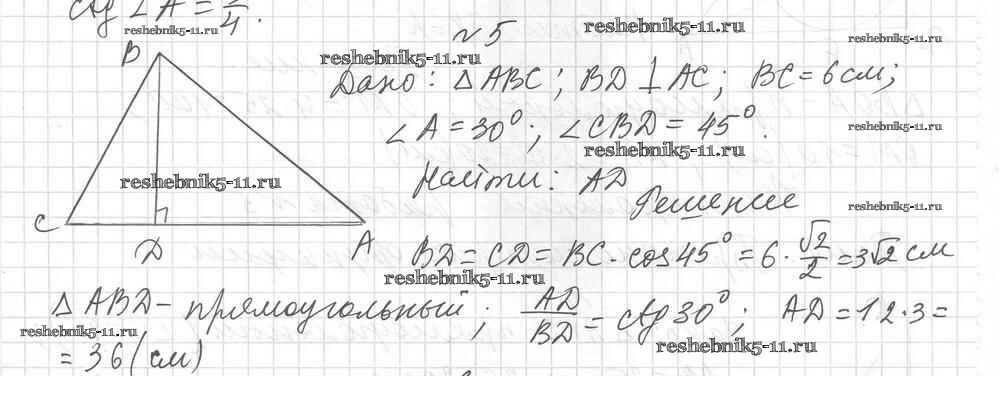 ctg ∠A = /4.
reshebnik5-11.ru
№5
reshebnik5-11.ru
reshebnik5-11.ru
B
reshebnik5-11.ru
Дано: △ABC; BD ⊥ AC; BC = 6 см;
∠A = 30°; ∠CBD = 45°.
reshebnik5-11.ru
reshebnik5-11.ru
Найти: AD
reshebnik5-11.ru
Решение
reshebnik5-11.ru
C
D
A
BD = CD = BC · cos 45° = 6 · √2/2 = 3√2 см
reshebnik5-11.ru
△ABD – прямоугольный; AD/BD = ctg 30°; AD = 12·3 =
reshebnik5-11.ru
reshebnik5-11.ru
= 36 (см)